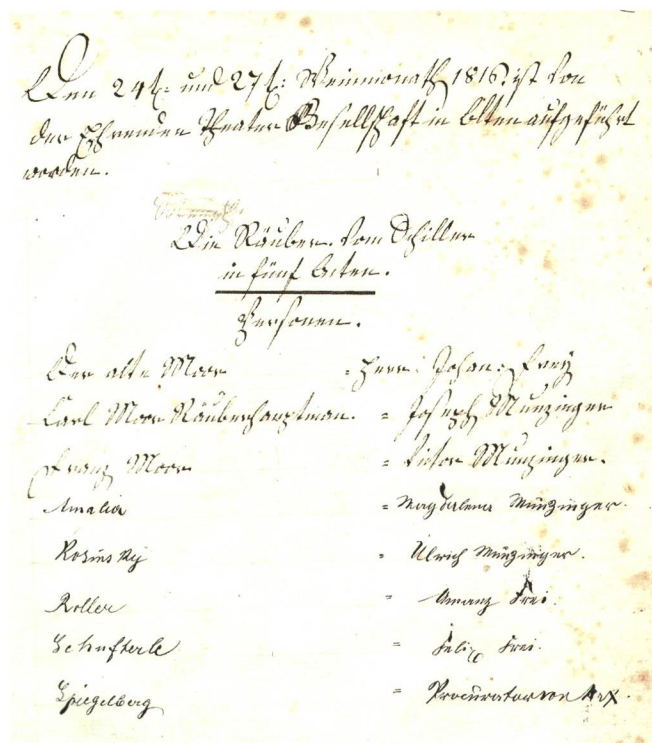 Den 24t. und 27t: Weinmonath 1816. ist von
der Ehrenden Theater Gesellschaft in Olten aufgeführt
worden.
Die Räuber. Vom Schiller
in fünf Acten.
Personen.
Der alte Moor = Herr: Johan: Frey
Carl Moor Räuberhauptman. = Joseph Munzinger
Franz Moor = Victor Munzinger.
Amalia = Magdalena Munzinger.
Kosinsky = Ulrich Munzinger.
Roller = Amanz Frei.
Schufterle = Felix Frei.
Spiegelberg = Procurator von Arx.